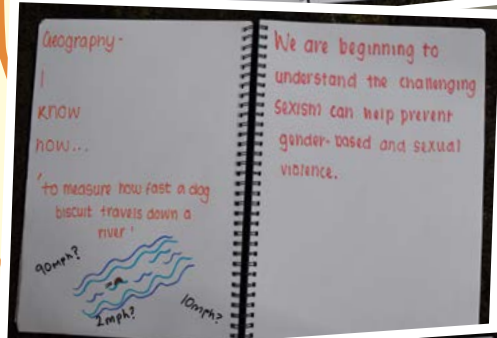 Geography -
I
know
how...
'to measure how fast a dog
biscuit travels down a
river'
90mph?
2mph?
10mph?
We are beginning to
understand the challenging
sexism can help prevent
gender-based and sexual
violence.